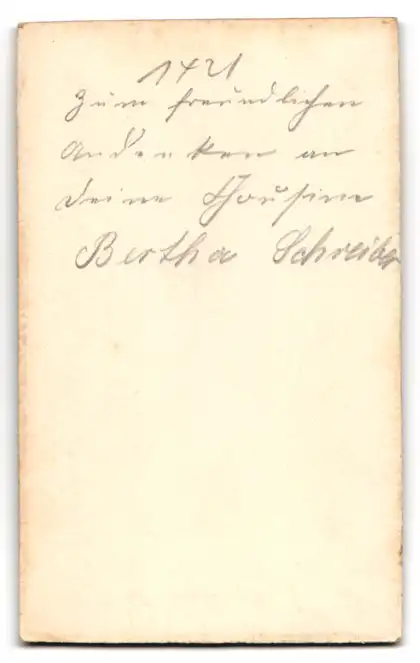 1421
Zum freundlichen
Andenken an
Deine Cousine
Bertha Schreiber